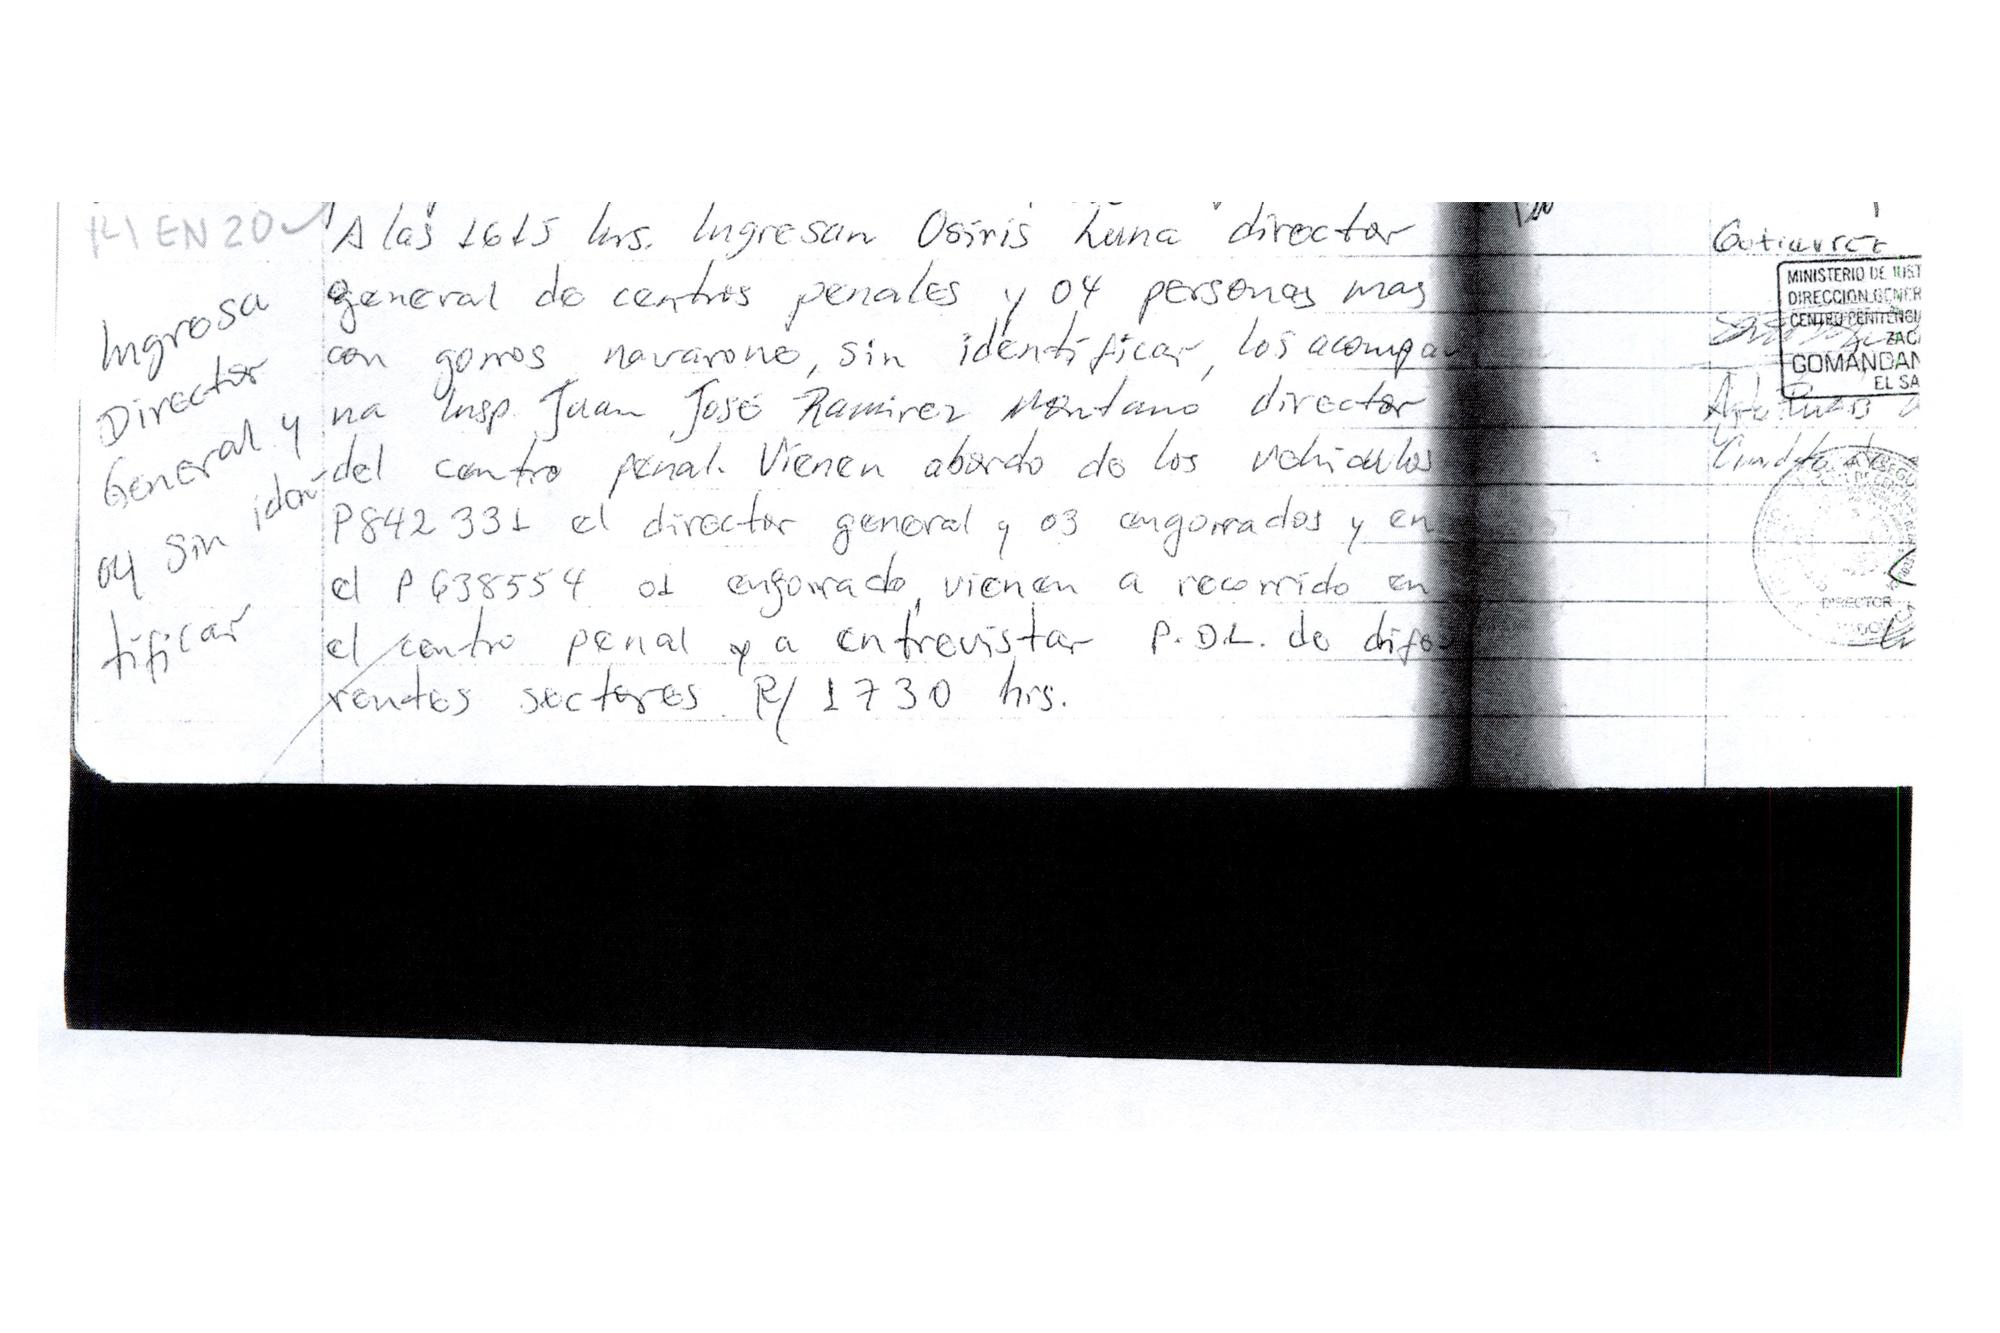 14 EN 20
Ingresa
Director
General y
04 Sin iden
tificar
A las 1615 hrs. Ingresan Osiris Luna director
general de centros penales y 04 personas mas
con gorros navarone, sin identificar, los acompa
na Insp. Juan José Ramirez Montano director
del centro penal. Vienen abordo de los vehiculos
P842331 el director general y 03 engorrados y en
el P638554 01 engorrado, vienen a recorrido en
el centro penal y a entrevistar P.D.L. de dife
rentes sectores R/ 1730 hrs.
Gutierrez
MINISTERIO DE JUST
DIRECCION GENER
CENTRO PENITENCI
ZAC
COMANDAN
EL SA
DIRECTOR